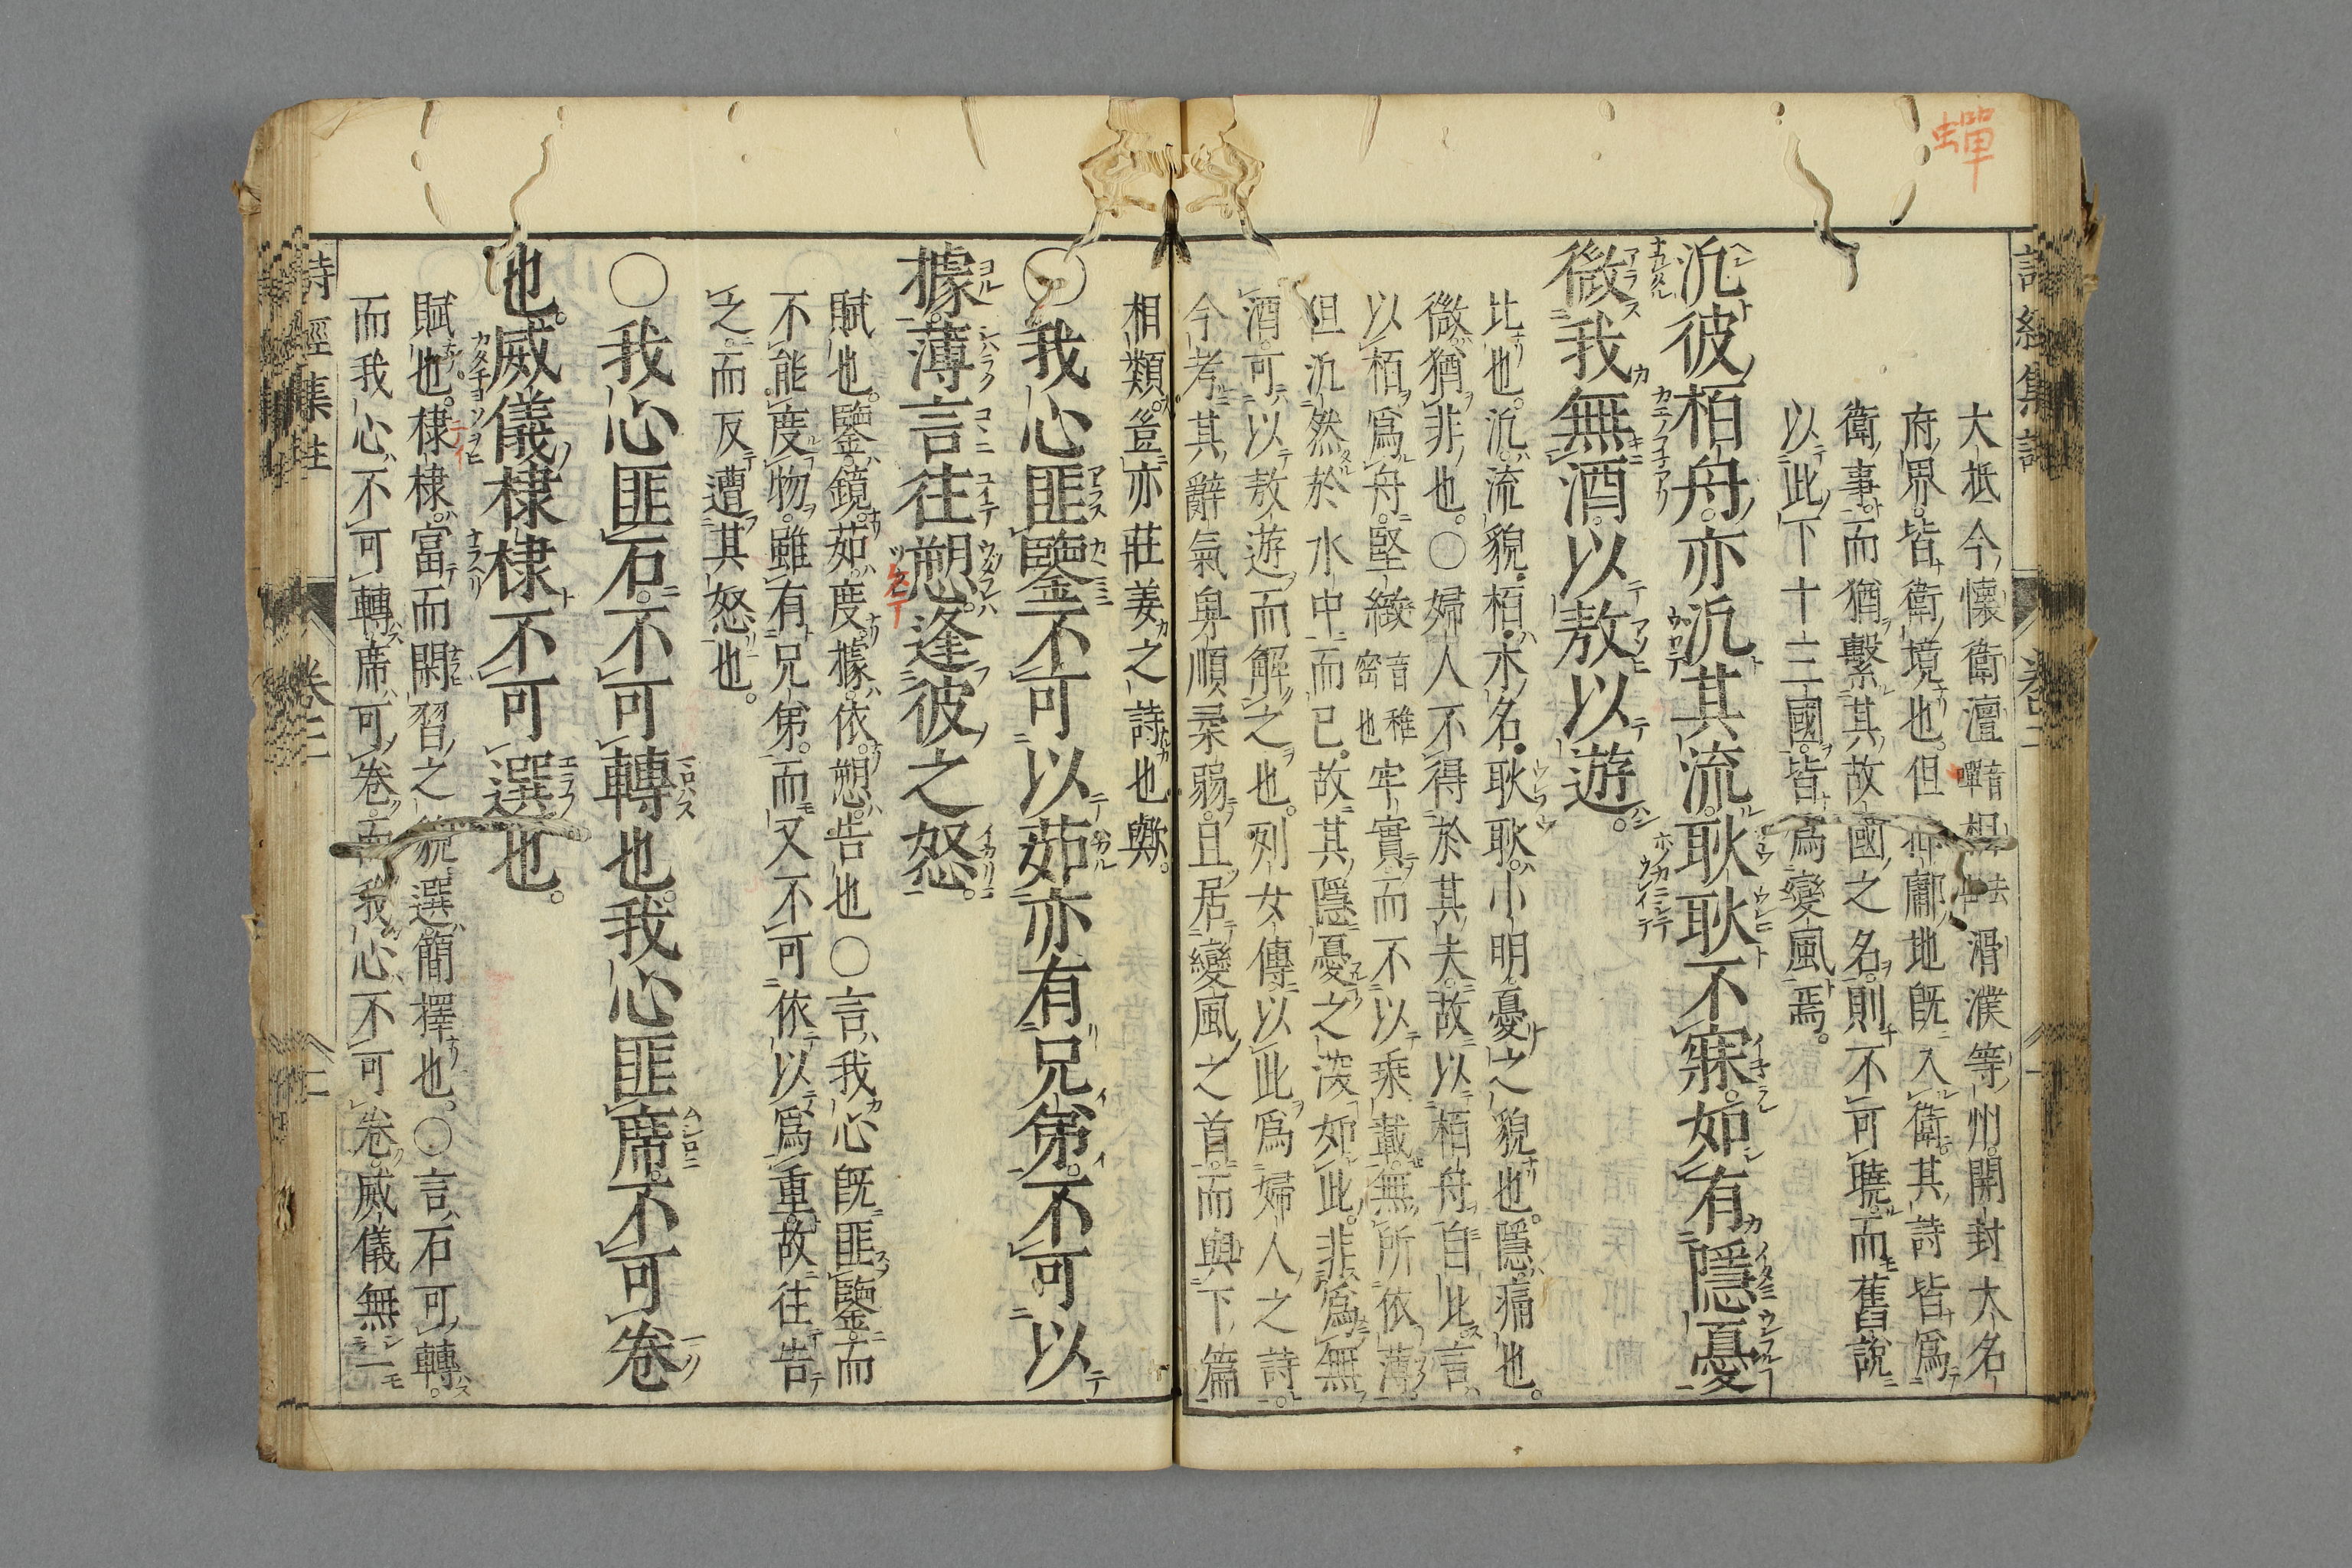 蟬
大抵今懷衛澶音蟬相去滑濮等州開封大名
府界皆衛境也但邶鄘地既入衛其詩皆爲
衛事而猶繫其故國之名則不可曉而舊說
以此下十三國皆爲變風焉。
汎彼栢舟亦汎其流耿耿不寐如有隱憂
微我無酒以敖以遊。
比也。汎流貌栢木名耿耿小明憂之貌也。隱痛也。
微猶非也。○婦人不得於其夫故以栢舟自比言
以栢爲舟堅緻音稚密也牢實而不以乘載無所依薄
但汎然於水中而已故其隱憂之深如此非爲無
酒可以敖遊而解之也。列女傳以此爲婦人之詩。
今考其辭氣卑順柔弱且居變風之首而與下篇
相類豈亦莊姜之詩也歟。
○我心匪鑒不可以茹亦有兄弟不可以
據薄言往愬逢彼之怒。
賦也。鑒鏡茹度據依愬告也○言我心既匪鑒而
不能度物雖有兄弟而又不可依以爲重故往告
之而反遭其怒也。
○我心匪石不可轉也我心匪席不可卷
也。威儀棣棣不可選也。
賦也。棣棣富而閑習之貌選簡擇也。○言石可轉。
而我心不可轉席可卷而我心不可卷威儀無一
詩經集註 卷三 二